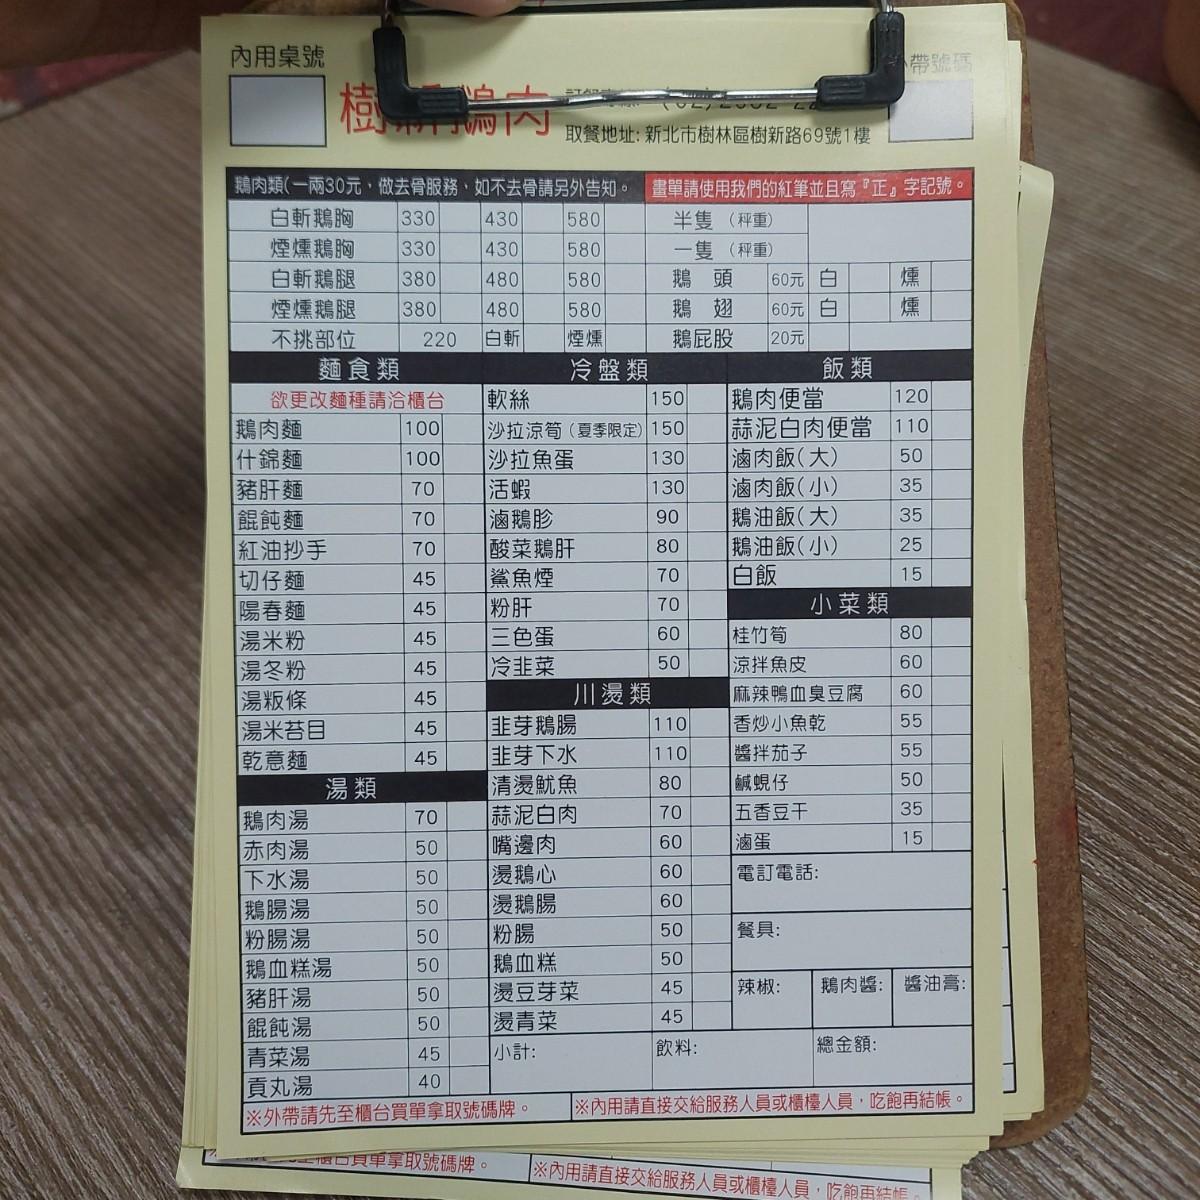 內用桌號
外帶號碼
樹新鵝肉
取餐地址: 新北市樹林區樹新路69號1樓
鵝肉類(一兩30元，做去骨服務，如不去骨請另外告知。
畫單請使用我們的紅筆並且寫『正』字記號。
白斬鵝胸 330 430 580 半隻 (秤重)
煙燻鵝胸 330 430 580 一隻 (秤重)
白斬鵝腿 380 480 580 鵝 頭 60元 白 燻
煙燻鵝腿 380 480 580 鵝 翅 60元 白 燻
不挑部位 220 白斬 煙燻 鵝屁股 20元
麵食類
欲更改麵種請洽櫃台
鵝肉麵 100
什錦麵 100
豬肝麵 70
餛飩麵 70
紅油抄手 70
切仔麵 45
陽春麵 45
湯米粉 45
湯冬粉 45
湯粄條 45
湯米苔目 45
乾意麵 45
湯類
鵝肉湯 70
赤肉湯 50
下水湯 50
鵝腸湯 50
粉腸湯 50
鵝血糕湯 50
豬肝湯 50
餛飩湯 50
青菜湯 45
貢丸湯 40
冷盤類
軟絲 150
沙拉涼筍(夏季限定) 150
沙拉魚蛋 130
活蝦 130
滷鵝胗 90
酸菜鵝肝 80
鯊魚煙 70
粉肝 70
三色蛋 60
冷韭菜 50
川燙類
韭芽鵝腸 110
韭芽下水 110
清燙魷魚 80
蒜泥白肉 70
嘴邊肉 60
燙鵝心 60
燙鵝腸 60
粉腸 50
鵝血糕 50
燙豆芽菜 45
燙青菜 45
飯類
鵝肉便當 120
蒜泥白肉便當 110
滷肉飯(大) 50
滷肉飯(小) 35
鵝油飯(大) 35
鵝油飯(小) 25
白飯 15
小菜類
桂竹筍 80
涼拌魚皮 60
麻辣鴨血臭豆腐 60
香炒小魚乾 55
醬拌茄子 55
鹹蜆仔 50
五香豆干 35
滷蛋 15
電訂電話:
餐具:
辣椒: 鵝肉醬: 醬油膏:
小計: 飲料: 總金額:
※外帶請先至櫃台買單拿取號碼牌。
※內用請直接交給服務人員或櫃檯人員，吃飽再結帳。
櫃台買單拿取號碼牌。
※內用請直接交給服務人員或櫃檯人員，吃飽再結帳。